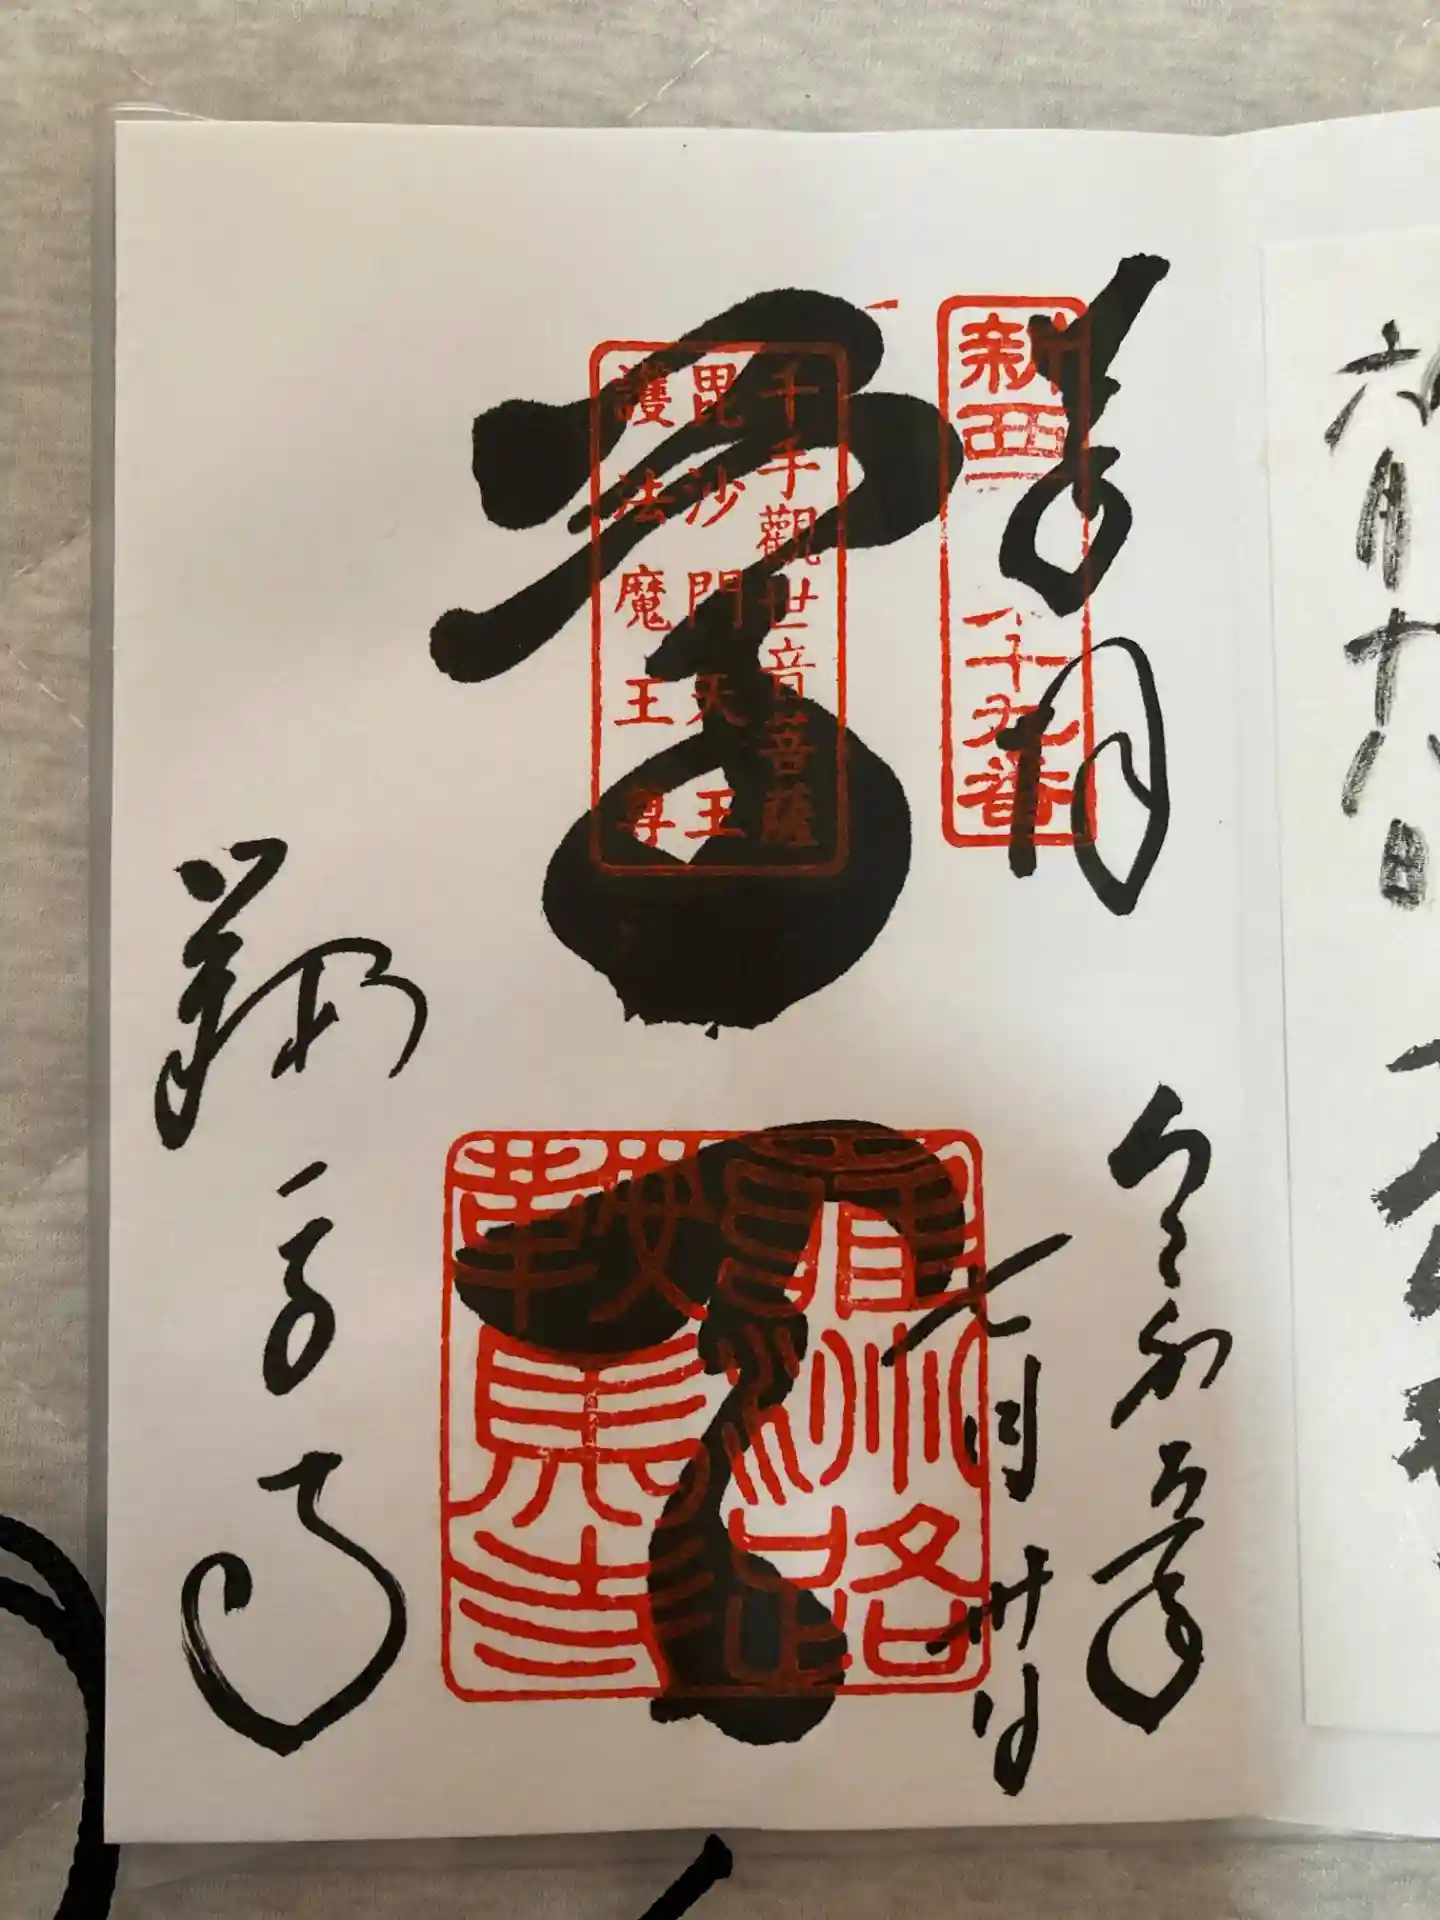 奉拝
新西国 十九番
令和五年
七月卅日
尊天
千手觀世音菩薩
毘沙門天王
護法魔王尊
鞍馬寺
鞍馬寺
六月十八日